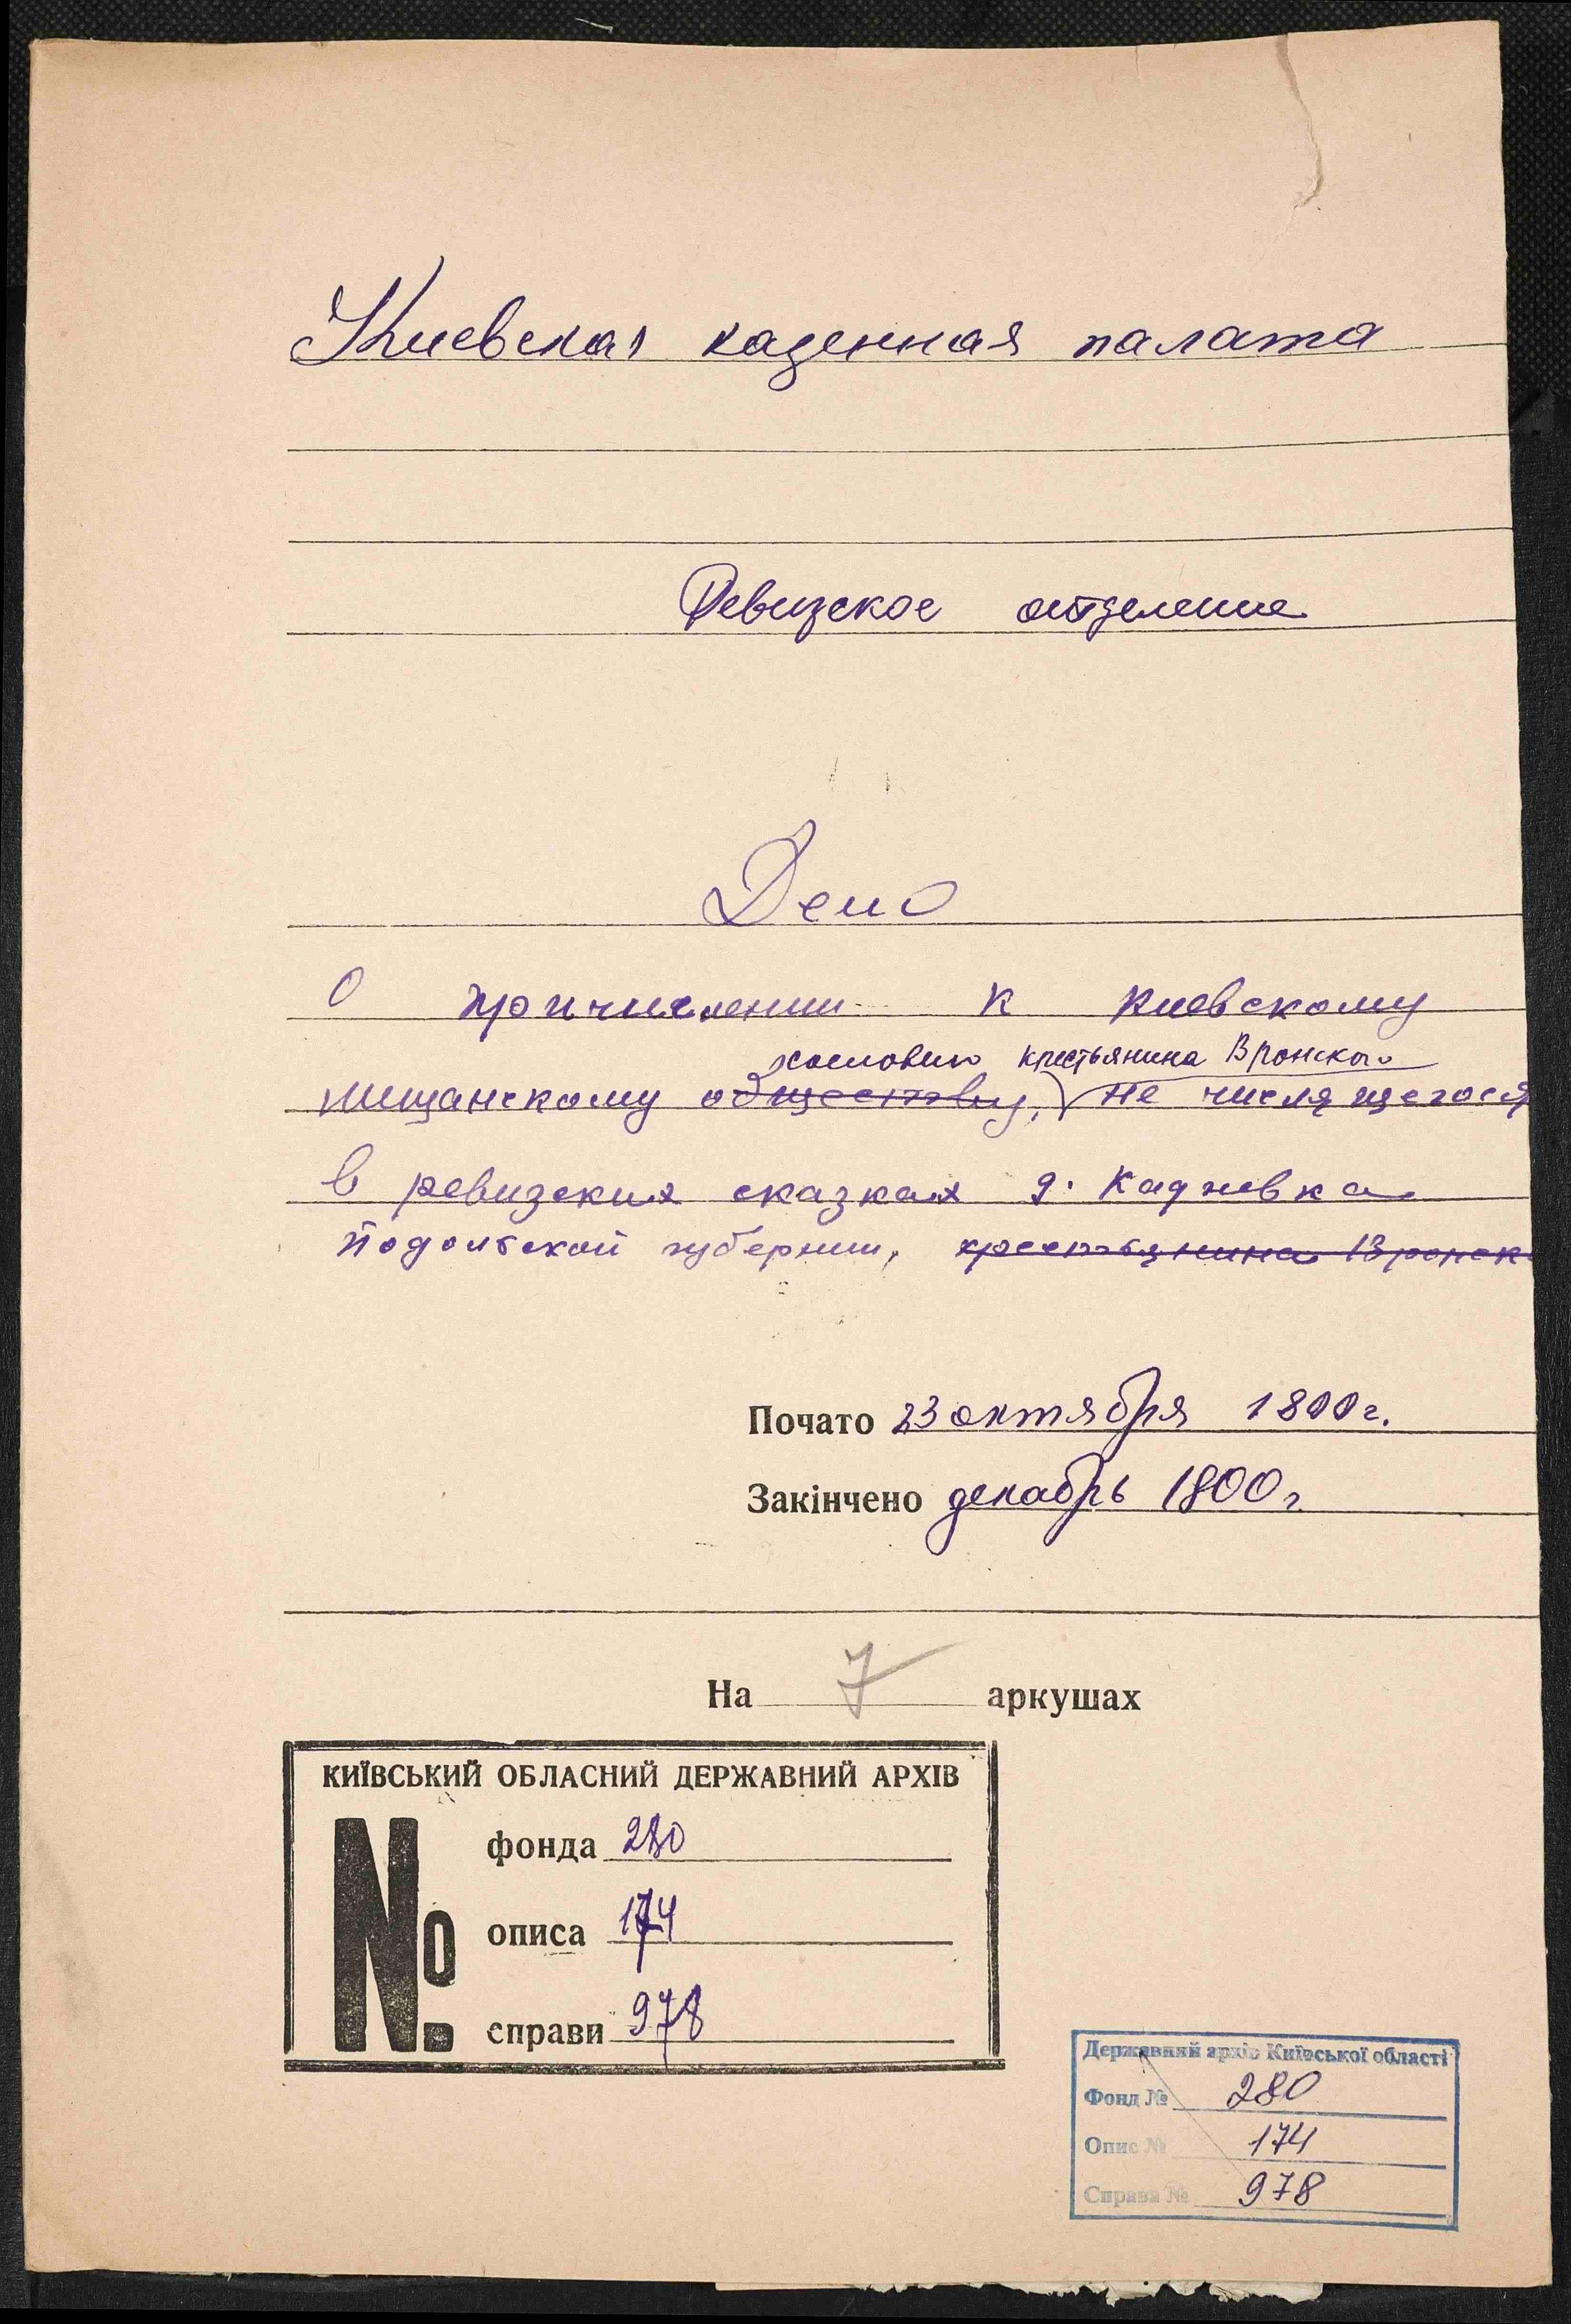 Киевская казенная палата
Ревизское отделение
Дело
О причислении к киевскому
сословию крестьянина Вронского
мищанскому обществу, не числящегося
в ревизских сказках д. Кадневка
Подольской губернии, крестьянина Вронск
Почато 23 октября 1800 г.
Закінчено декабрь 1800 г.
На 7 аркушах
КИЇВСЬКИЙ ОБЛАСНИЙ ДЕРЖАВНИЙ АРХІВ
№ фонда 280
описа 174
справи 978
Державний архів Київської області
Фонд № 280
Опис № 174
Справа № 978